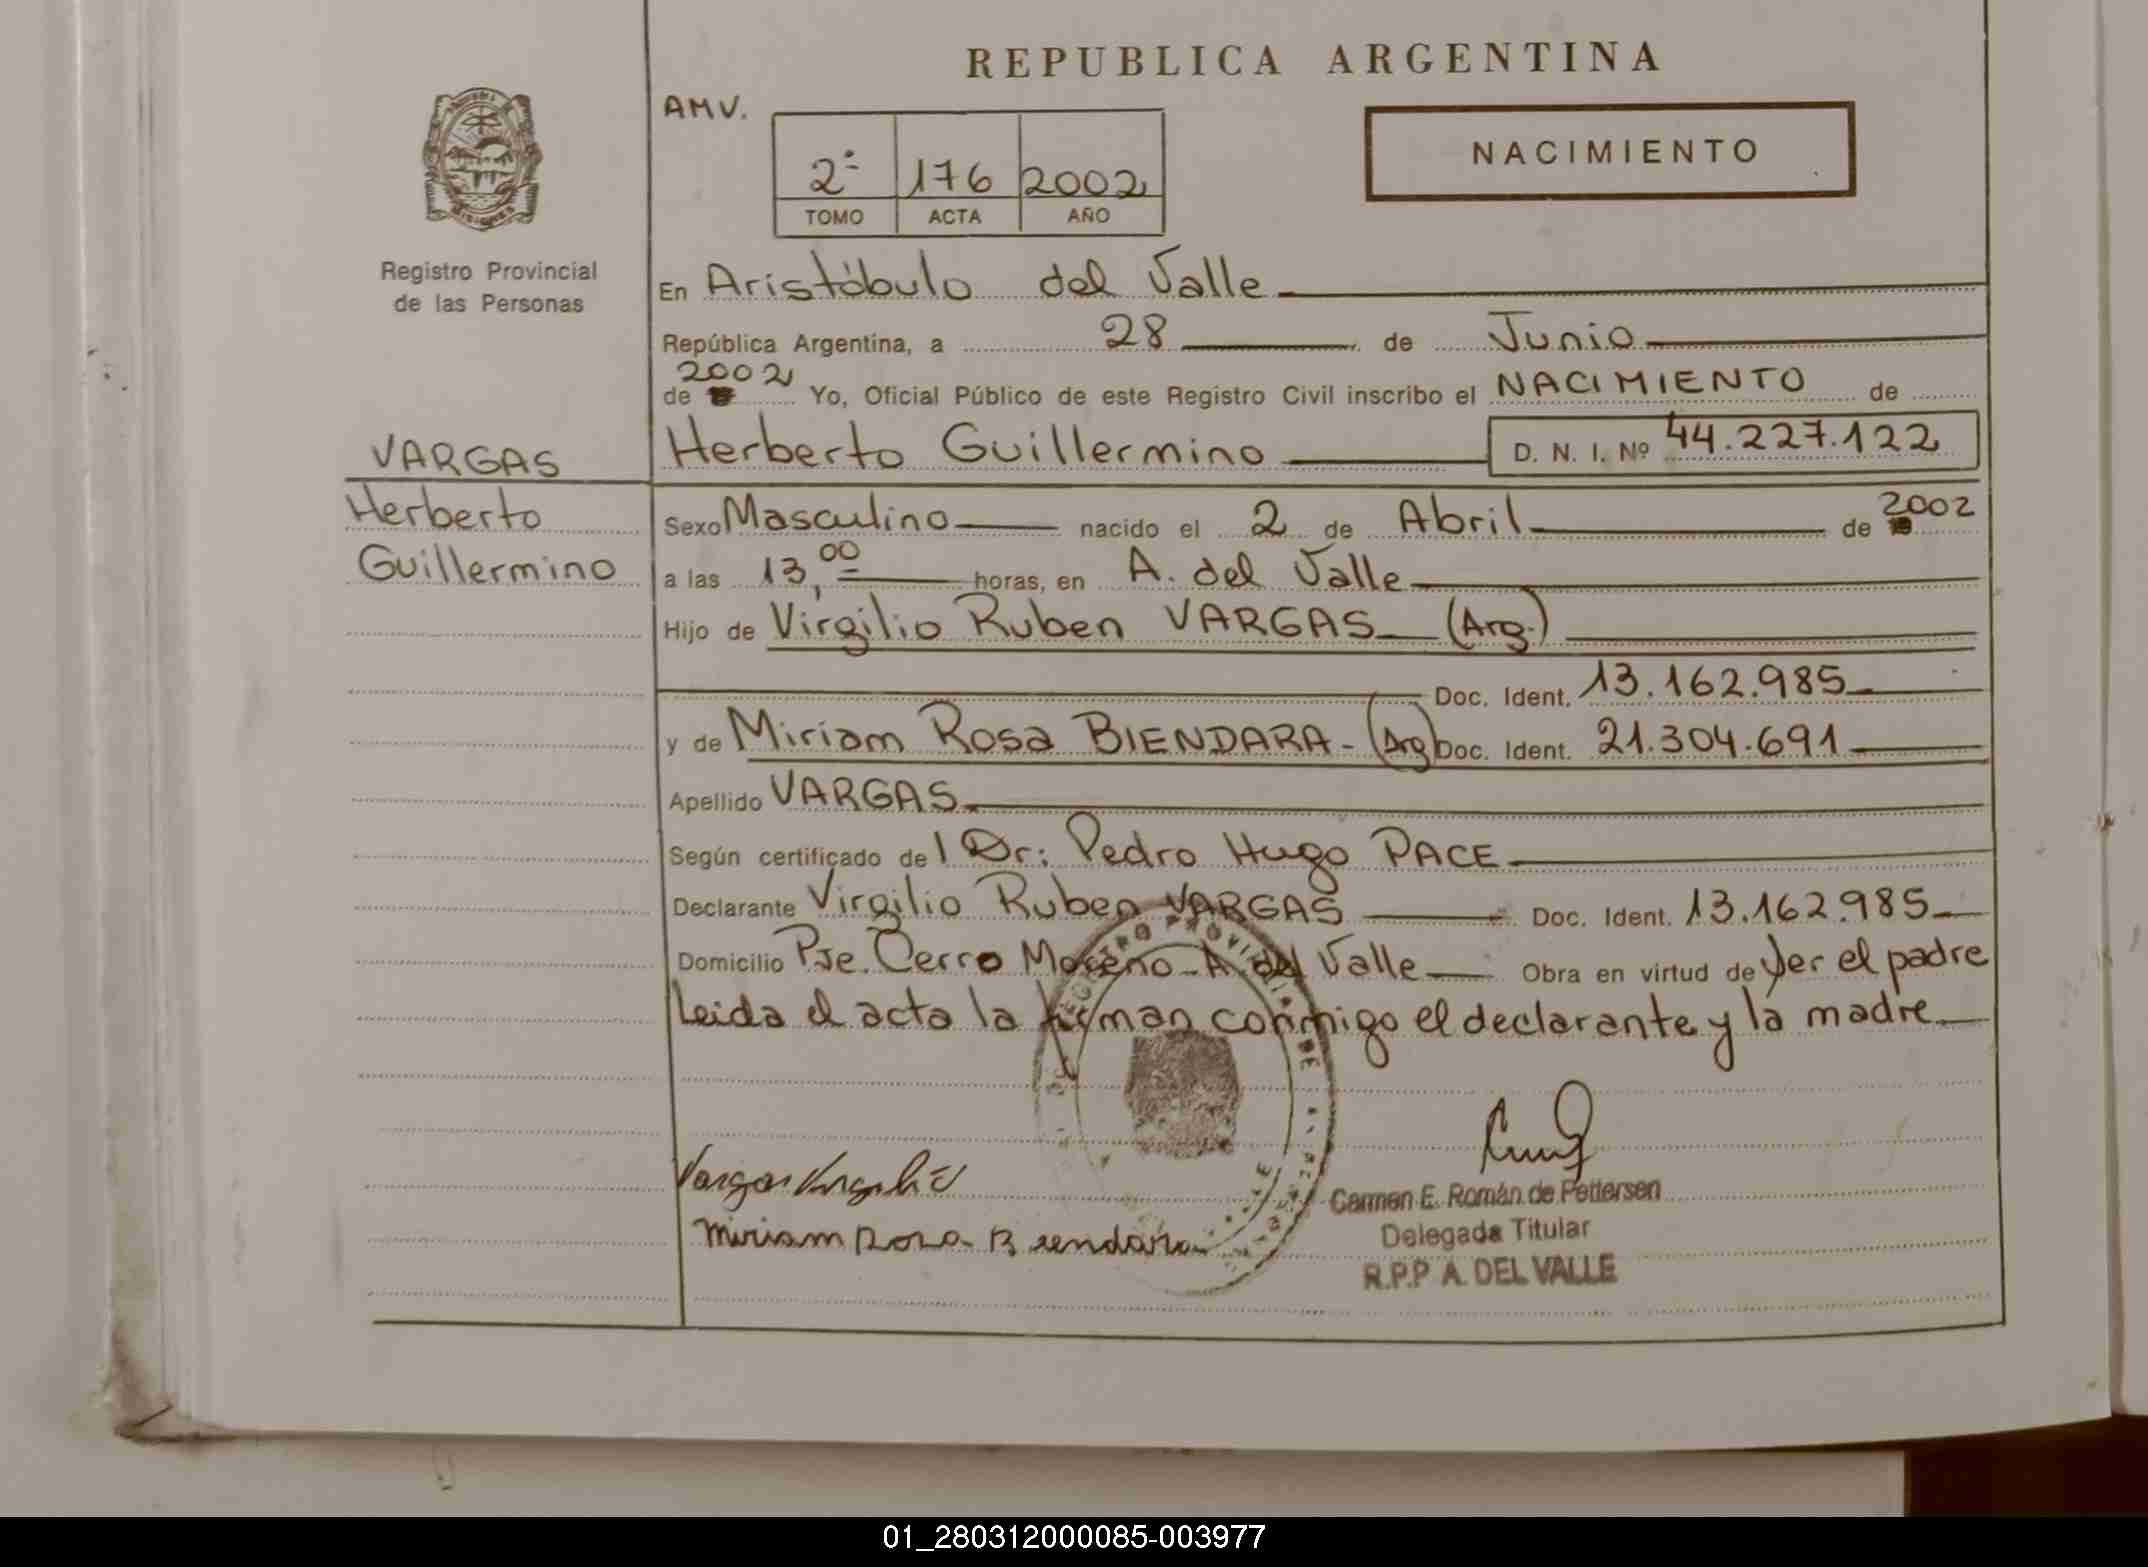 REPUBLICA ARGENTINA
AMV.
NACIMIENTO
2º 176 2002
TOMO ACTA AÑO
MISIONES
Registro Provincial
de las Personas
En Aristóbulo del Valle
República Argentina, a 28 de Junio
de 2002 Yo, Oficial Público de este Registro Civil inscribo el NACIMIENTO de
Herberto Guillermino D. N. I. Nº 44.227.122
VARGAS
Herberto
Guillermino
Sexo Masculino nacido el 2 de Abril de 2002
a las 13,00 horas, en A. del Valle
Hijo de Virgilio Ruben VARGAS (Arg.)
Doc. Ident. 13.162.985
y de Miriam Rosa BIENDARA - (Arg) Doc. Ident. 21.304.691
Apellido VARGAS
Según certificado del Dr: Pedro Hugo PACE
Declarante Virgilio Ruben VARGAS Doc. Ident. 13.162.985
Domicilio Pje. Cerro Moreno - A. del Valle Obra en virtud de ser el padre
Leida el acta la firman conmigo el declarante y la madre
REGISTRO PROVINCIAL DE
Vargas Virgilio
Miriam Rosa Biendara
Carmen E. Román de Pettersen
Delegada Titular
R.P.P A. DEL VALLE
01_280312000085-003977